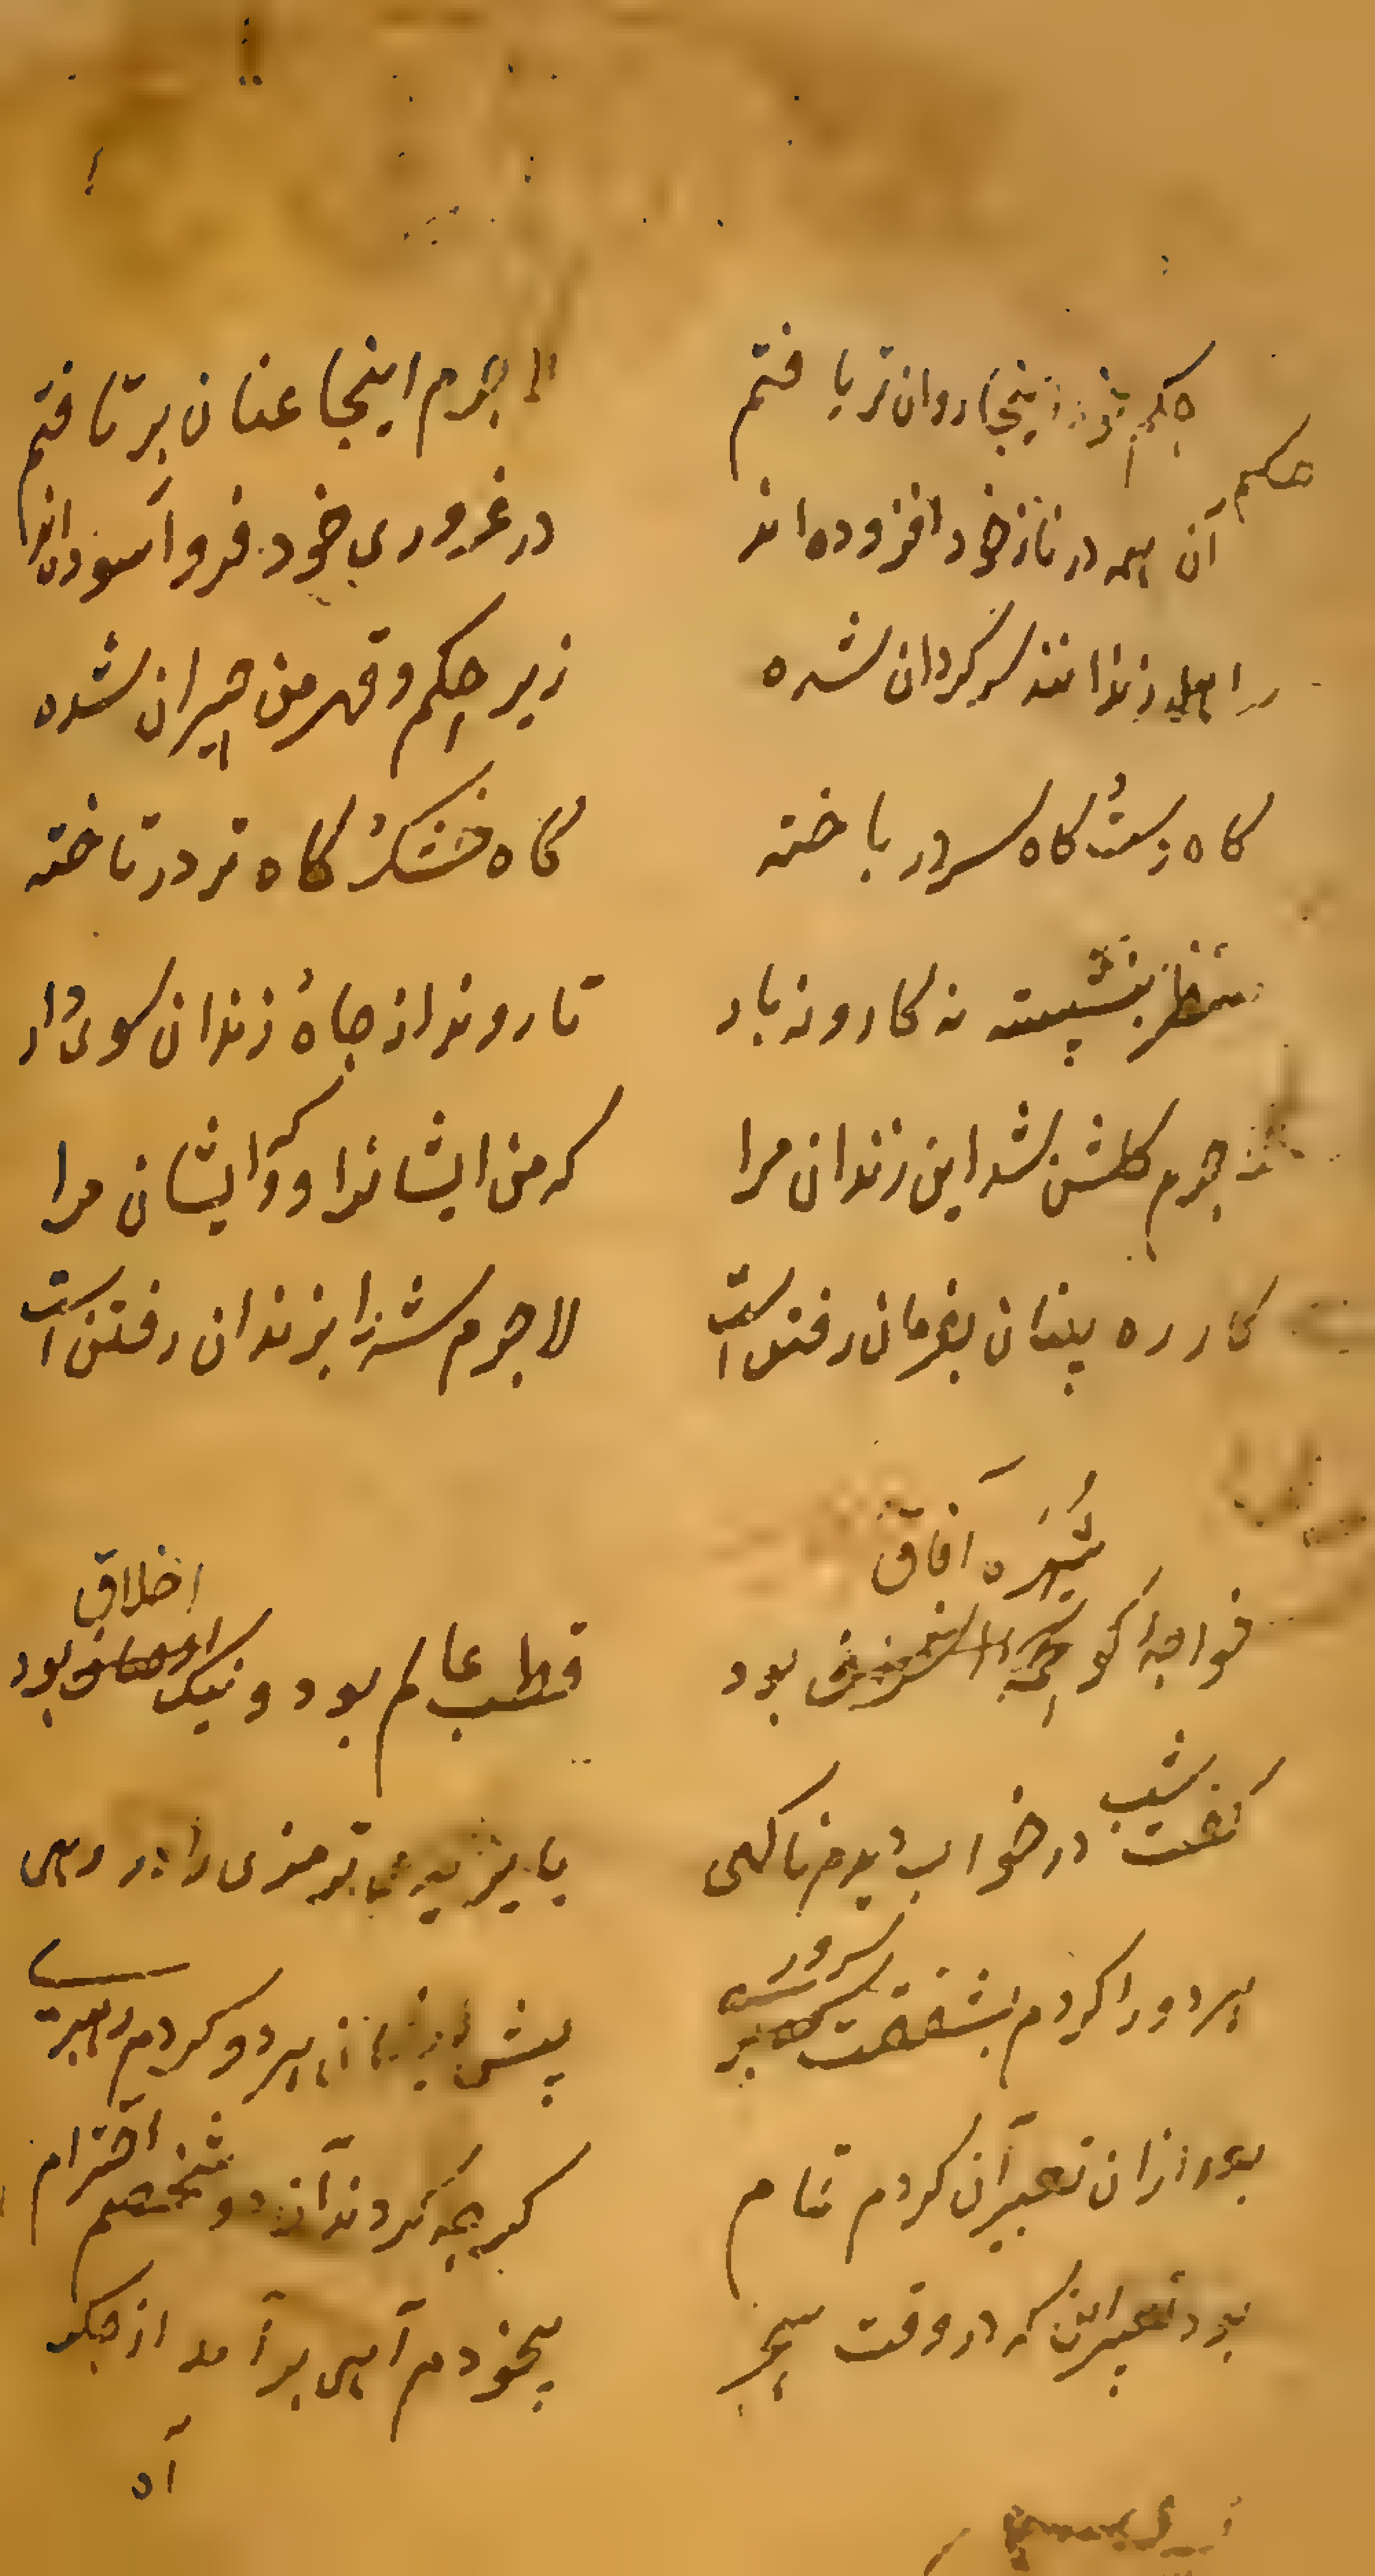 حکم خود اینجا روان تر یافتم لاجرم اینجا عنان برتافتم
حکم
آن همه در ناز خود افزوده‌اند در غروری خود فرو آسوده‌اند
اهل زندانند سرگردان شده زیر حکم و قهر من حیران شده
گاه دست گاه سر در باخته گاه خشک گاه تر در تاخته
منتظر بنشسته نه کار و نه بار تا روند از جاه زندان سوی دار
جرم گلشن شد این زندان مرا که من ایشانرا و گه ایشان مرا
کار ره بینان بفرمان رفتن است لاجرم شه را بزندان رفتن است
شهره آفاق
اخلاق
خواجهٔ کو بود قطب عالم بود و نیک اوصاف بود
شب
گفت در خواب دیدم ناگهی بایزید و ترمزی را در رهی
سرور
هر دو را کردم بشفقت پیش ایشان هر دو کردم رهبری
بعد ازان تعبیر آن کردم تمام کز چه کردند آن دو شخصم احترام
بود تعبیر این که در وقت سحر بیخودم آهی برآمد از جگر
آه